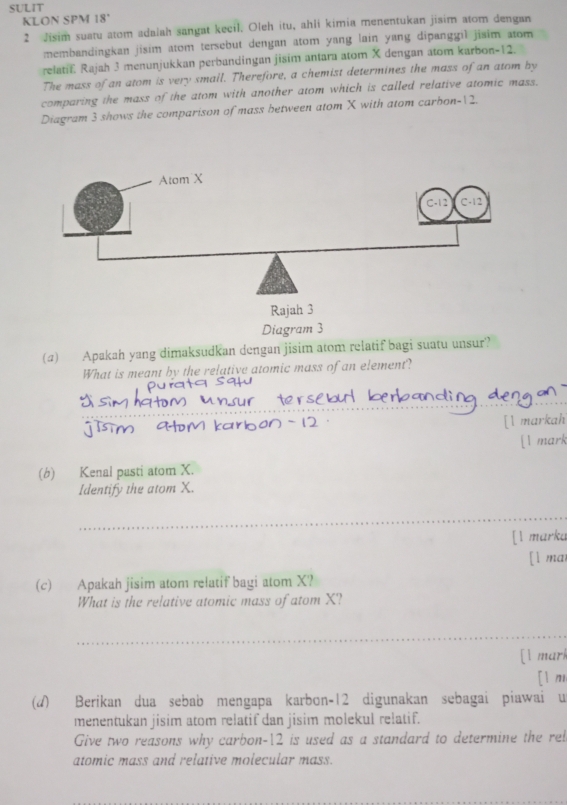 SULIT
KLON SPM 18'
2 Jisim suatu atom adalah sangat kecil. Oleh itu, ahli kimia menentukan jisim atom dengan
membandingkan jisim atom tersebut dengan atom yang lain yang dipanggil jisim atom
relatif. Rajah 3 menunjukkan perbandingan jisim antara atom X dengan atom karbon-12.
The mass of an atom is very small. Therefore, a chemist determines the mass of an atom by
comparing the mass of the atom with another atom which is called relative atomic mass.
Diagram 3 shows the comparison of mass between atom X with atom carbon-12.
Atom X
C-12 C-12
Rajah 3
Diagram 3
(a) Apakah yang dimaksudkan dengan jisim atom relatif bagi suatu unsur?
What is meant by the relative atomic mass of an element?
purata satu
Jisim atom unsur tersebut berbanding dengan
jisim atom karbon-12.
[1 markah
[1 mark
(b) Kenal pasti atom X.
Identify the atom X.
[1 marka
[1 ma
(c) Apakah jisim atom relatif bagi atom X?
What is the relative atomic mass of atom X?
[1 mark
[1 m
(d) Berikan dua sebab mengapa karbon-12 digunakan sebagai piawai u
menentukan jisim atom relatif dan jisim molekul relatif.
Give two reasons why carbon-12 is used as a standard to determine the rel
atomic mass and relative molecular mass.